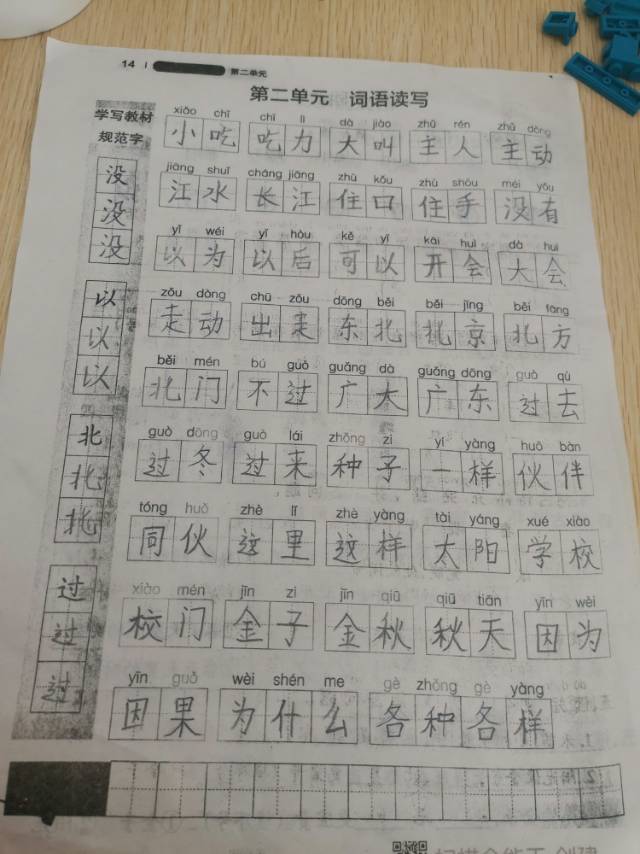 14 第二单元
第二单元 词语读写
学写教材
规范字
没
没
没
以
以
以
北
北
北
过
过
过
xiǎo chī chī lì dà jiào zhǔ rén zhǔ dòng
小吃 吃力 大叫 主人 主动
jiāng shuǐ cháng jiāng zhù kǒu zhù shǒu méi yǒu
江水 长江 住口 住手 没有
yǐ wéi yǐ hòu kě yǐ kāi huì dà huì
以为 以后 可以 开会 大会
zǒu dòng chū zǒu dōng běi běi jīng běi fāng
走动 出走 东北 北京 北方
běi mén bú guò guǎng dà guǎng dōng guò qù
北门 不过 广大 广东 过去
guò dōng guò lái zhǒng zi yí yàng huǒ bàn
过冬 过来 种子 一样 伙伴
tóng huǒ zhè lǐ zhè yàng tài yáng xué xiào
同伙 这里 这样 太阳 学校
xiào mén jīn zi jīn qiū qiū tiān yīn wèi
校门 金子 金秋 秋天 因为
yīn guǒ wèi shén me gè zhǒng gè yàng
因果 为什么 各种各样